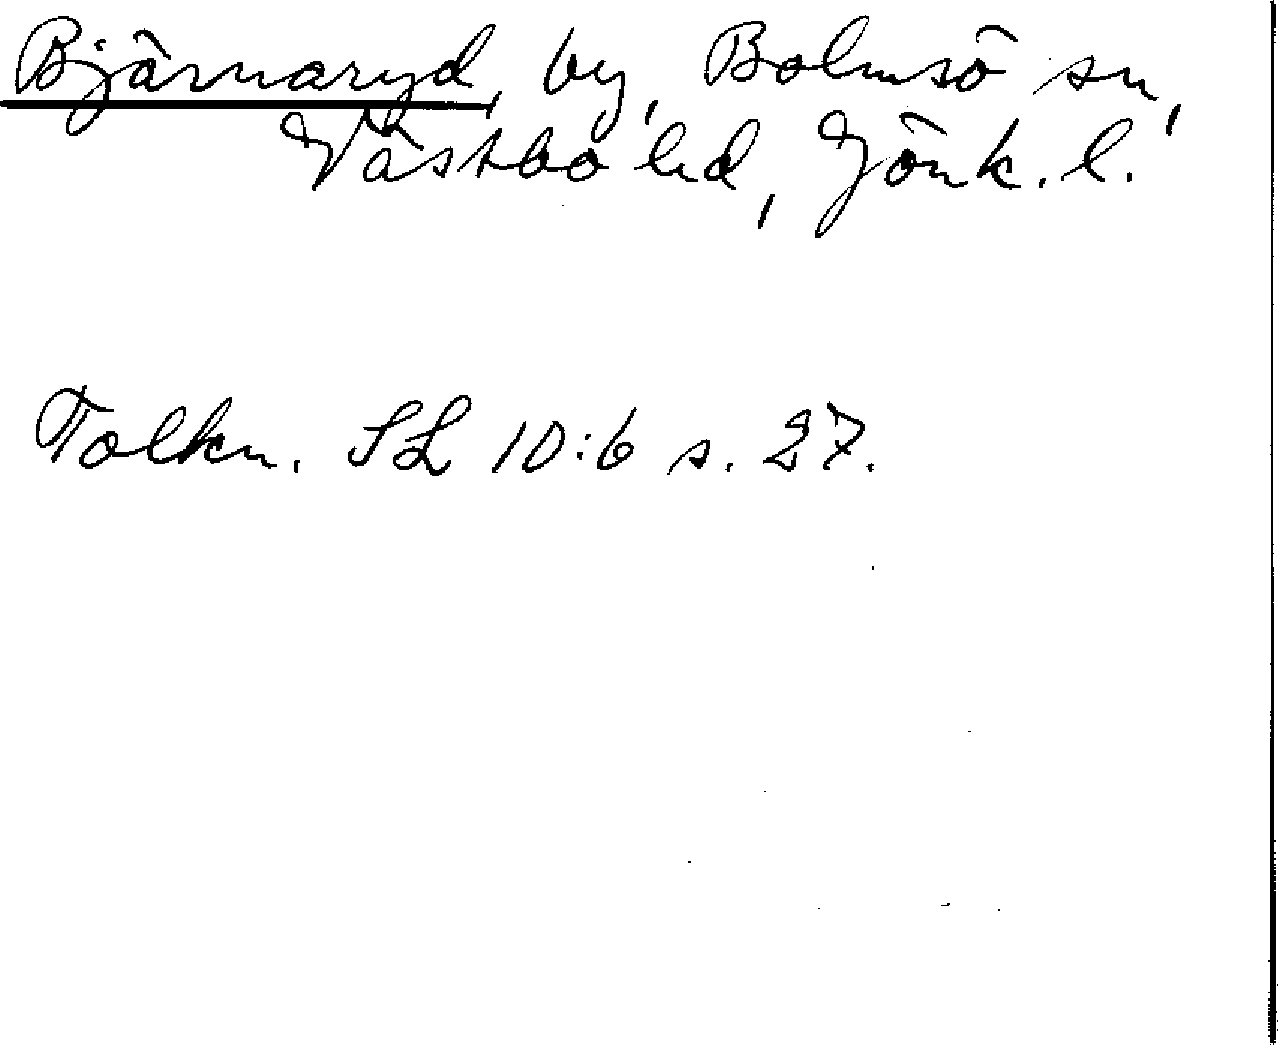 Bjärnaryd, by, Bolmsö sn,
Västbo hd, Jönk. l.
Tolkn. SL 10:6 s. 27.